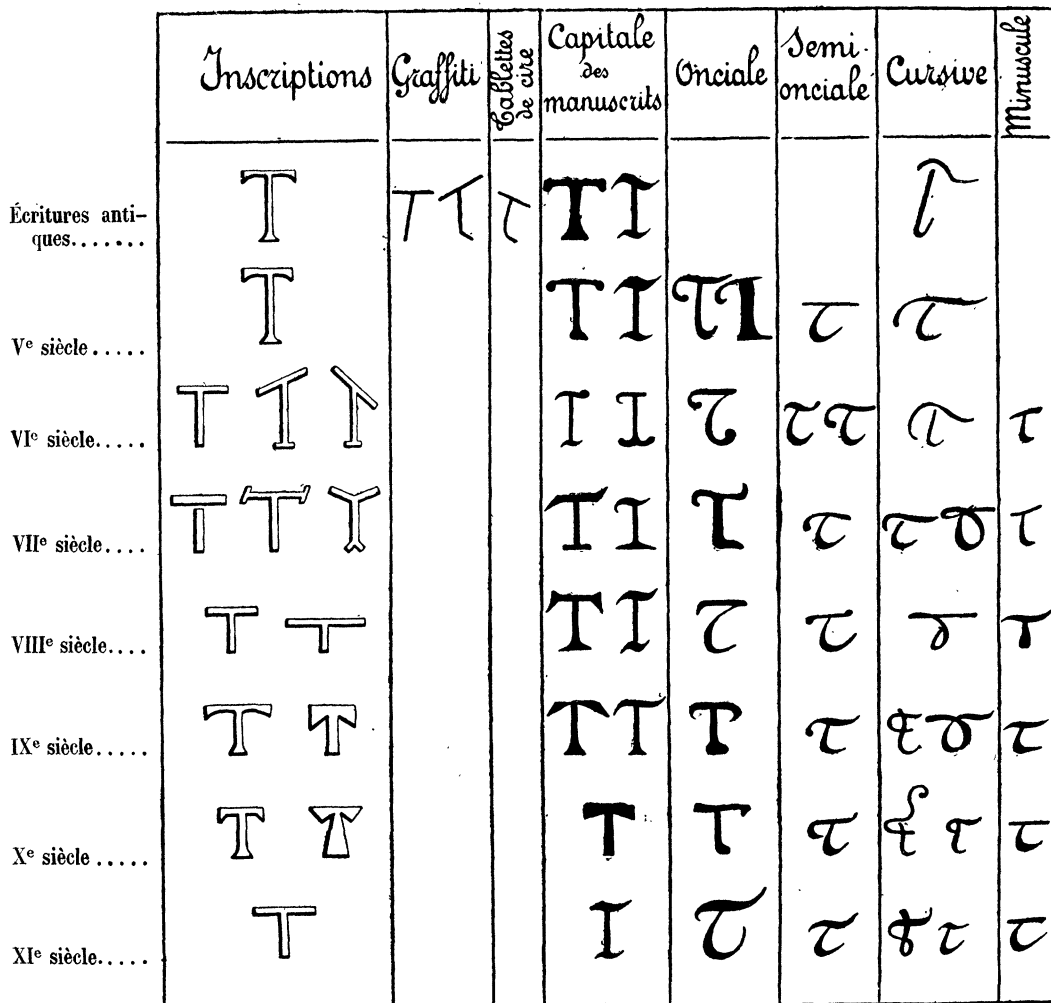 Inscriptions
Graffiti
Tablettes
de cire
Capitale
des
manuscrits
Onciale
Semi-
onciale
Cursive
Minuscule
Écritures anti-
ques.......
T T T T T T T
Vᵉ siècle.....
T T T T T T T
VIᵉ siècle.....
T T T T T T T T T T
VIIᵉ siècle....
T T T T T T T T T T
VIIIᵉ siècle....
T T T T T T T T
IXᵉ siècle.....
T T T T T T T T T
Xᵉ siècle.....
T T T T T T T T
XIᵉ siècle.....
T T T T T T T